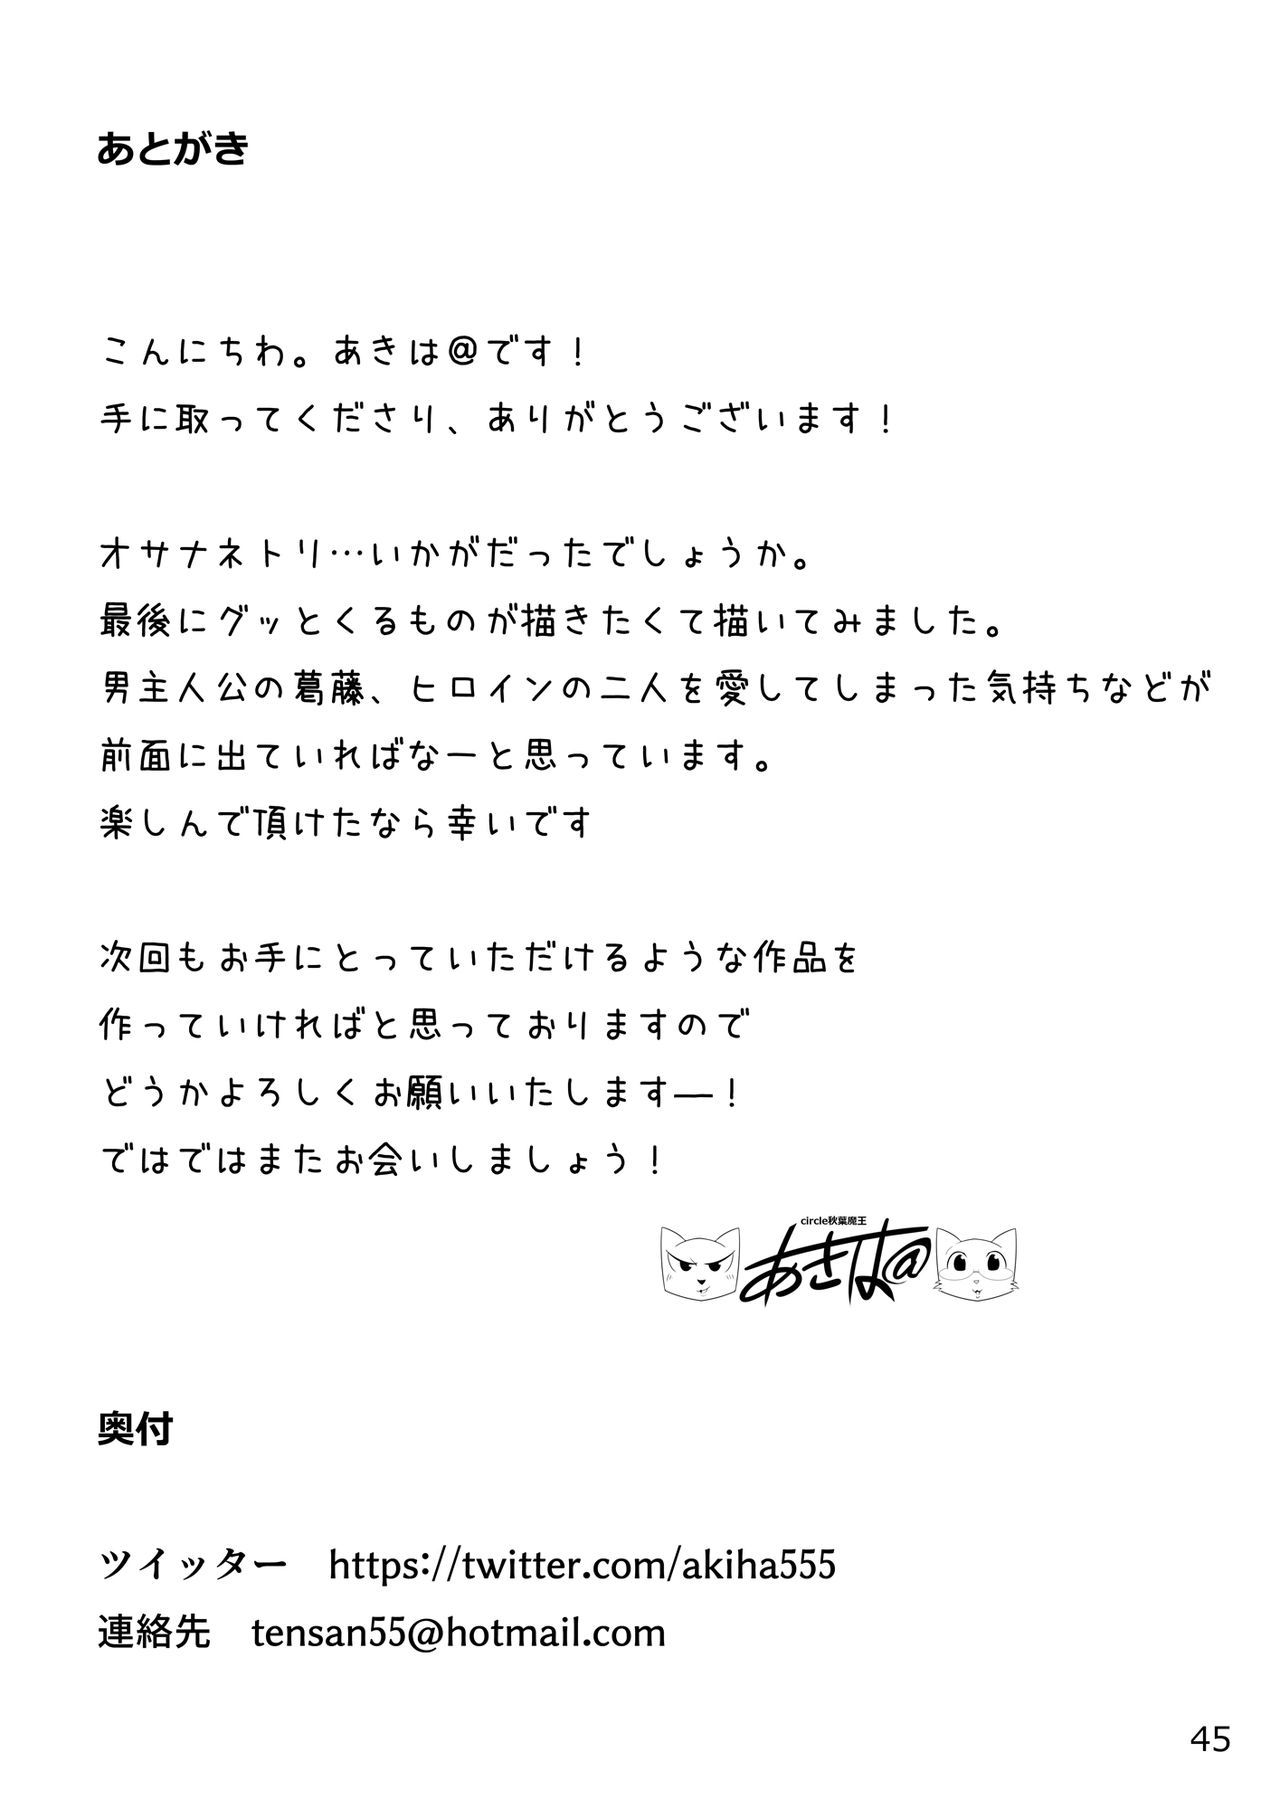 あとがき
こんにちわ。あきは@です！
手に取ってくださり、ありがとうございます！
オサナネトリ…いかがだったでしょうか。
最後にグッとくるものが描きたくて描いてみました。
男主人公の葛藤、ヒロインの二人を愛してしまった気持ちなどが
前面に出ていればなーと思っています。
楽しんで頂けたなら幸いです
次回もお手にとっていただけるような作品を
作っていければと思っておりますので
どうかよろしくお願いいたします―！
ではではまたお会いしましょう！
circle秋葉魔王
あきは@
奥付
ツイッター　https://twitter.com/akiha555
連絡先　tensan55@hotmail.com
45